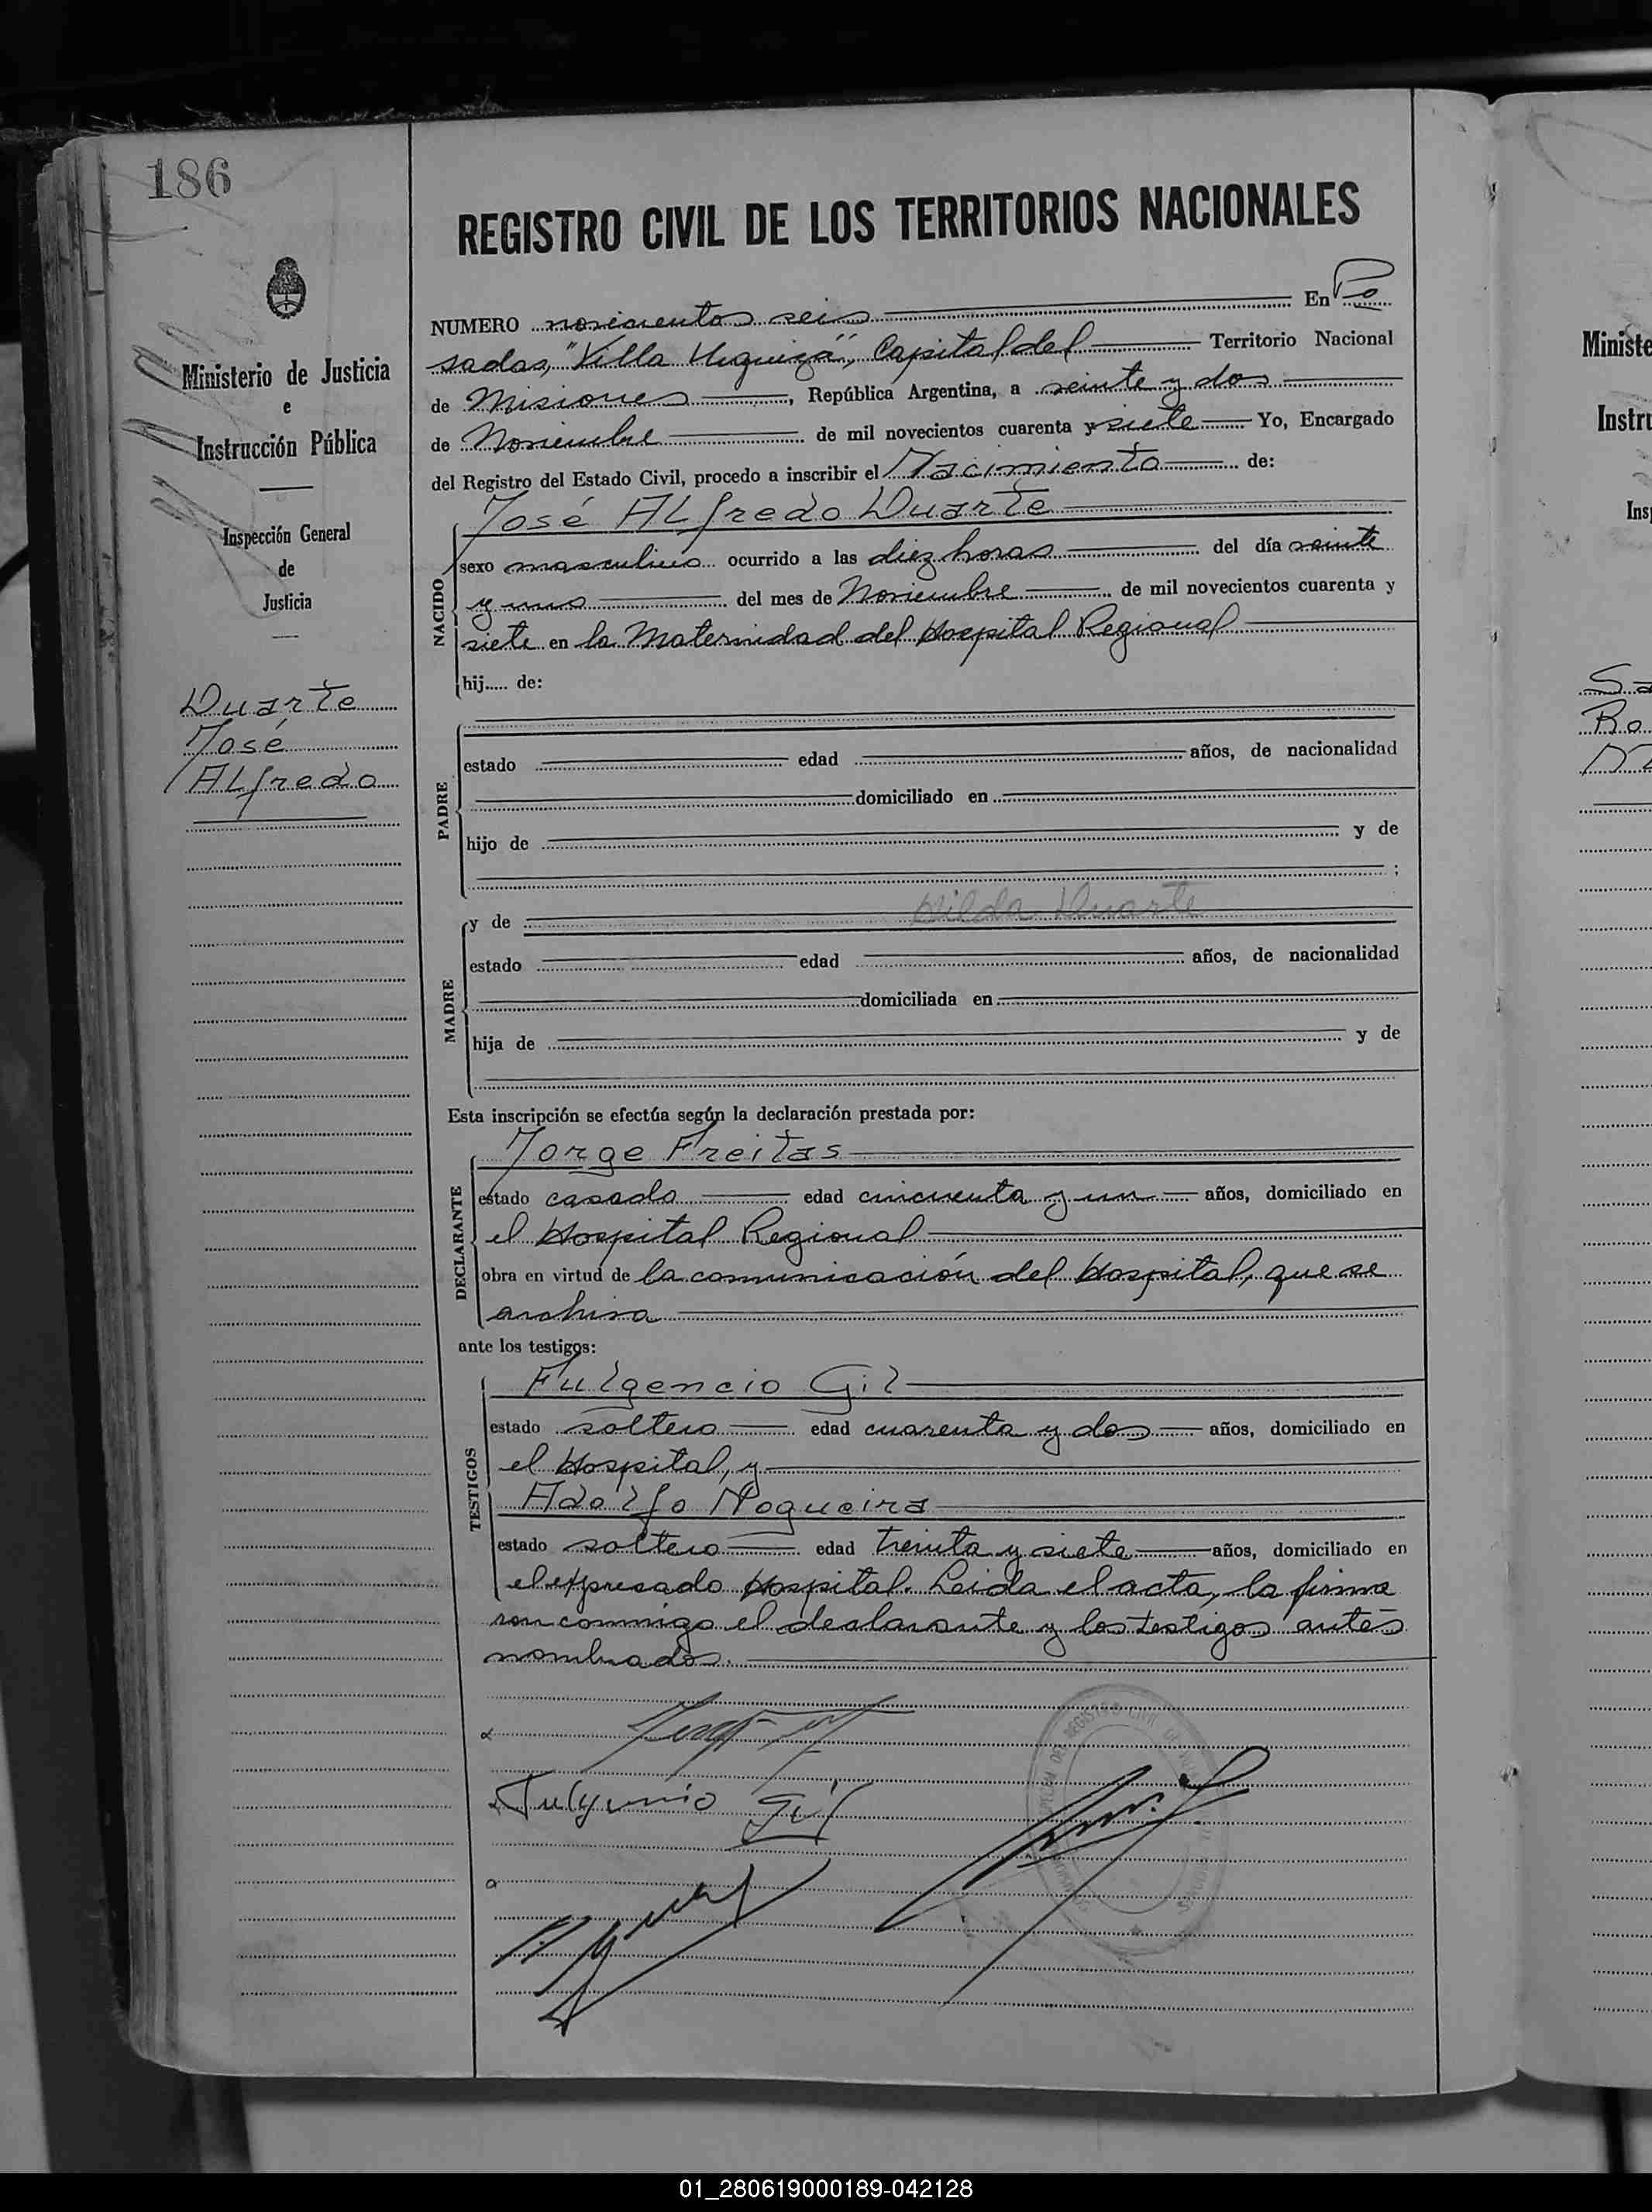 186
REGISTRO CIVIL DE LOS TERRITORIOS NACIONALES
Ministerio de Justicia
e
Instrucción Pública
Inspección General
de
Justicia
Duarte
José
ALfredo
NUMERO novecientos seis En Po
sadas, "Villa Urquiza", Capital del Territorio Nacional
de Misiones, República Argentina, a veinte y dos
de Noviembre de mil novecientos cuarenta y siete Yo, Encargado
del Registro del Estado Civil, procedo a inscribir el Nacimiento de:
NACIDO
José ALfredo Duarte
sexo masculino ocurrido a las diez horas del día veinte
y uno del mes de Noviembre de mil novecientos cuarenta y
siete en la Maternidad del Hospital Regional
hij..... de:
PADRE
estado edad años, de nacionalidad
domiciliado en
hijo de y de
;
MADRE
y de Duarte
estado edad años, de nacionalidad
domiciliada en
hija de y de
Esta inscripción se efectúa según la declaración prestada por:
DECLARANTE
Jorge Freitas
estado casado edad cincuenta y un años, domiciliado en
el Hospital Regional
obra en virtud de la comunicación del Hospital, que se
archiva
ante los testigos:
TESTIGOS
Fulgencio Gil
estado soltero edad cuarenta y dos años, domiciliado en
el Hospital, y
Adolfo Nogueira
estado soltero edad treinta y siete años, domiciliado en
el expresado Hospital. Leida el acta, la firma
ron conmigo el declarante y los testigos antes
nombrados.
Fulgencio Gil
Ministe
Instru
Insp
Sa
Ro
01_280619000189-042128